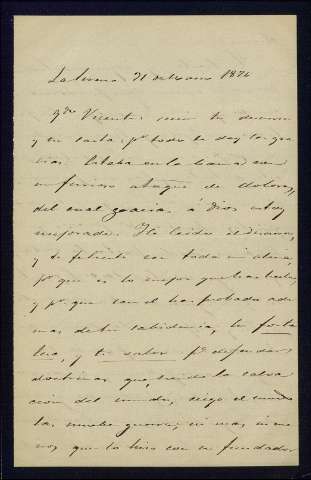 La Serena 31 de Marzo 1876
Qdo Vicente: recibí tu discurso
y tu carta; pr todo te doy las gra
cias. Estaba en la cama con
un furioso ataque de dolores,
del cual gracias á Dios estoy
mejorado. He leido el discurso,
y te felicito con toda mi alma,
pr que es lo mejor que has hecho,
y pr que con el has probado ade
mas de tu sabiduria, tu forta
leza, y tu valor pa defender
doctrinas que, siendo la salva
ción del mundo, sigo el mundo
las mucha guerra; ni mas ni me
nos que la hizo con su fundador